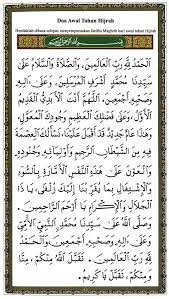 Doa Awal Tahun Hijrah
Hendaklah dibaca selepas menyempurnakan fardhu Maghrib hari awal tahun Hijrah
بِسْمِ اللهِ الرَّحْمٰنِ الرَّحِيْمِ
اَلْحَمْدُ لِلّٰهِ رَبِّ الْعَالَمِيْنَ، وَالصَّلَاةُ وَالسَّلَامُ عَلَى
سَيِّدِنَا مُحَمَّدٍ أَشْرَفِ الْمُرْسَلِيْنَ، وَعَلَى آلِهِ
وَصَحْبِهِ أَجْمَعِيْنَ. اَللّٰهُمَّ أَنْتَ الْأَبَدِيُّ الْقَدِيْمُ
الْأَوَّلُ وَعَلَى فَضْلِكَ الْعَظِيْمِ وَجُوْدِكَ الْمُعَوَّلُ،
وَهٰذَا عَامٌ جَدِيْدٌ قَدْ أَقْبَلَ، نَسْأَلُكَ الْعِصْمَةَ
فِيْهِ مِنَ الشَّيْطَانِ الرَّجِيْمِ وَأَوْلِيَائِهِ وَجُنُوْدِهِ
وَالْعَوْنَ عَلَى هٰذِهِ النَّفْسِ الْأَمَّارَةِ بِالسُّوْءِ
وَالْاِشْتِغَالَ بِمَا يُقَرِّبُنَا إِلَيْكَ زُلْفَى، يَا ذَا
الْجَلَالِ وَالْإِكْرَامِ يَا أَرْحَمَ الرَّاحِمِيْنَ.
وَصَلَّى اللهُ عَلَى سَيِّدِنَا مُحَمَّدٍ النَّبِيِّ الْأُمِّيِّ
وَعَلَى آلِهِ وَصَحْبِهِ أَجْمَعِيْنَ، وَالْحَمْدُ
لِلّٰهِ رَبِّ الْعَالَمِيْنَ. تَقَبَّلَ اللهُ مِنَّا
وَمِنْكُمْ، تَقَبَّلْ يَا كَرِيْمُ.